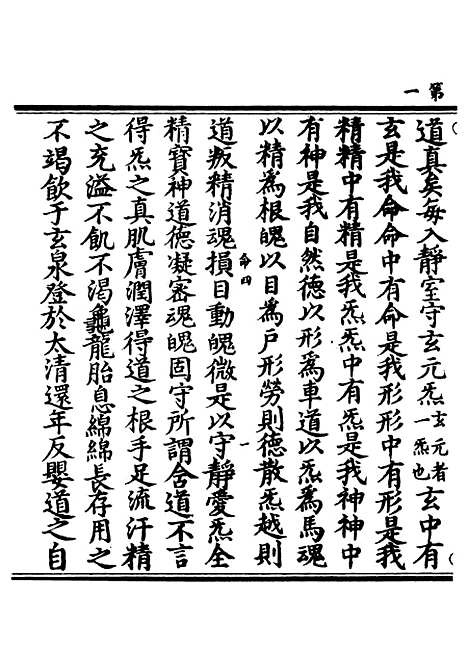 第一
道真矣每入靜室守玄元炁玄元者一炁也玄中有
玄是我命命中有命是我形形中有形是我
精精中有精是我炁炁中有炁是我神神中
有神是我自然德以形爲車道以炁爲馬魂
以精爲根魄以目爲戶形勞則德散炁越則
命四 一
道叛精消魂損目動魄微是以守靜愛炁全
精寳神道德凝審魂魄固守所謂含道不言
得炁之真肌膚潤澤得道之根手足流汗精
之充溢不飢不渴龜龍胎息綿綿長存用之
不竭飲于玄泉登於太清還年反嬰道之自